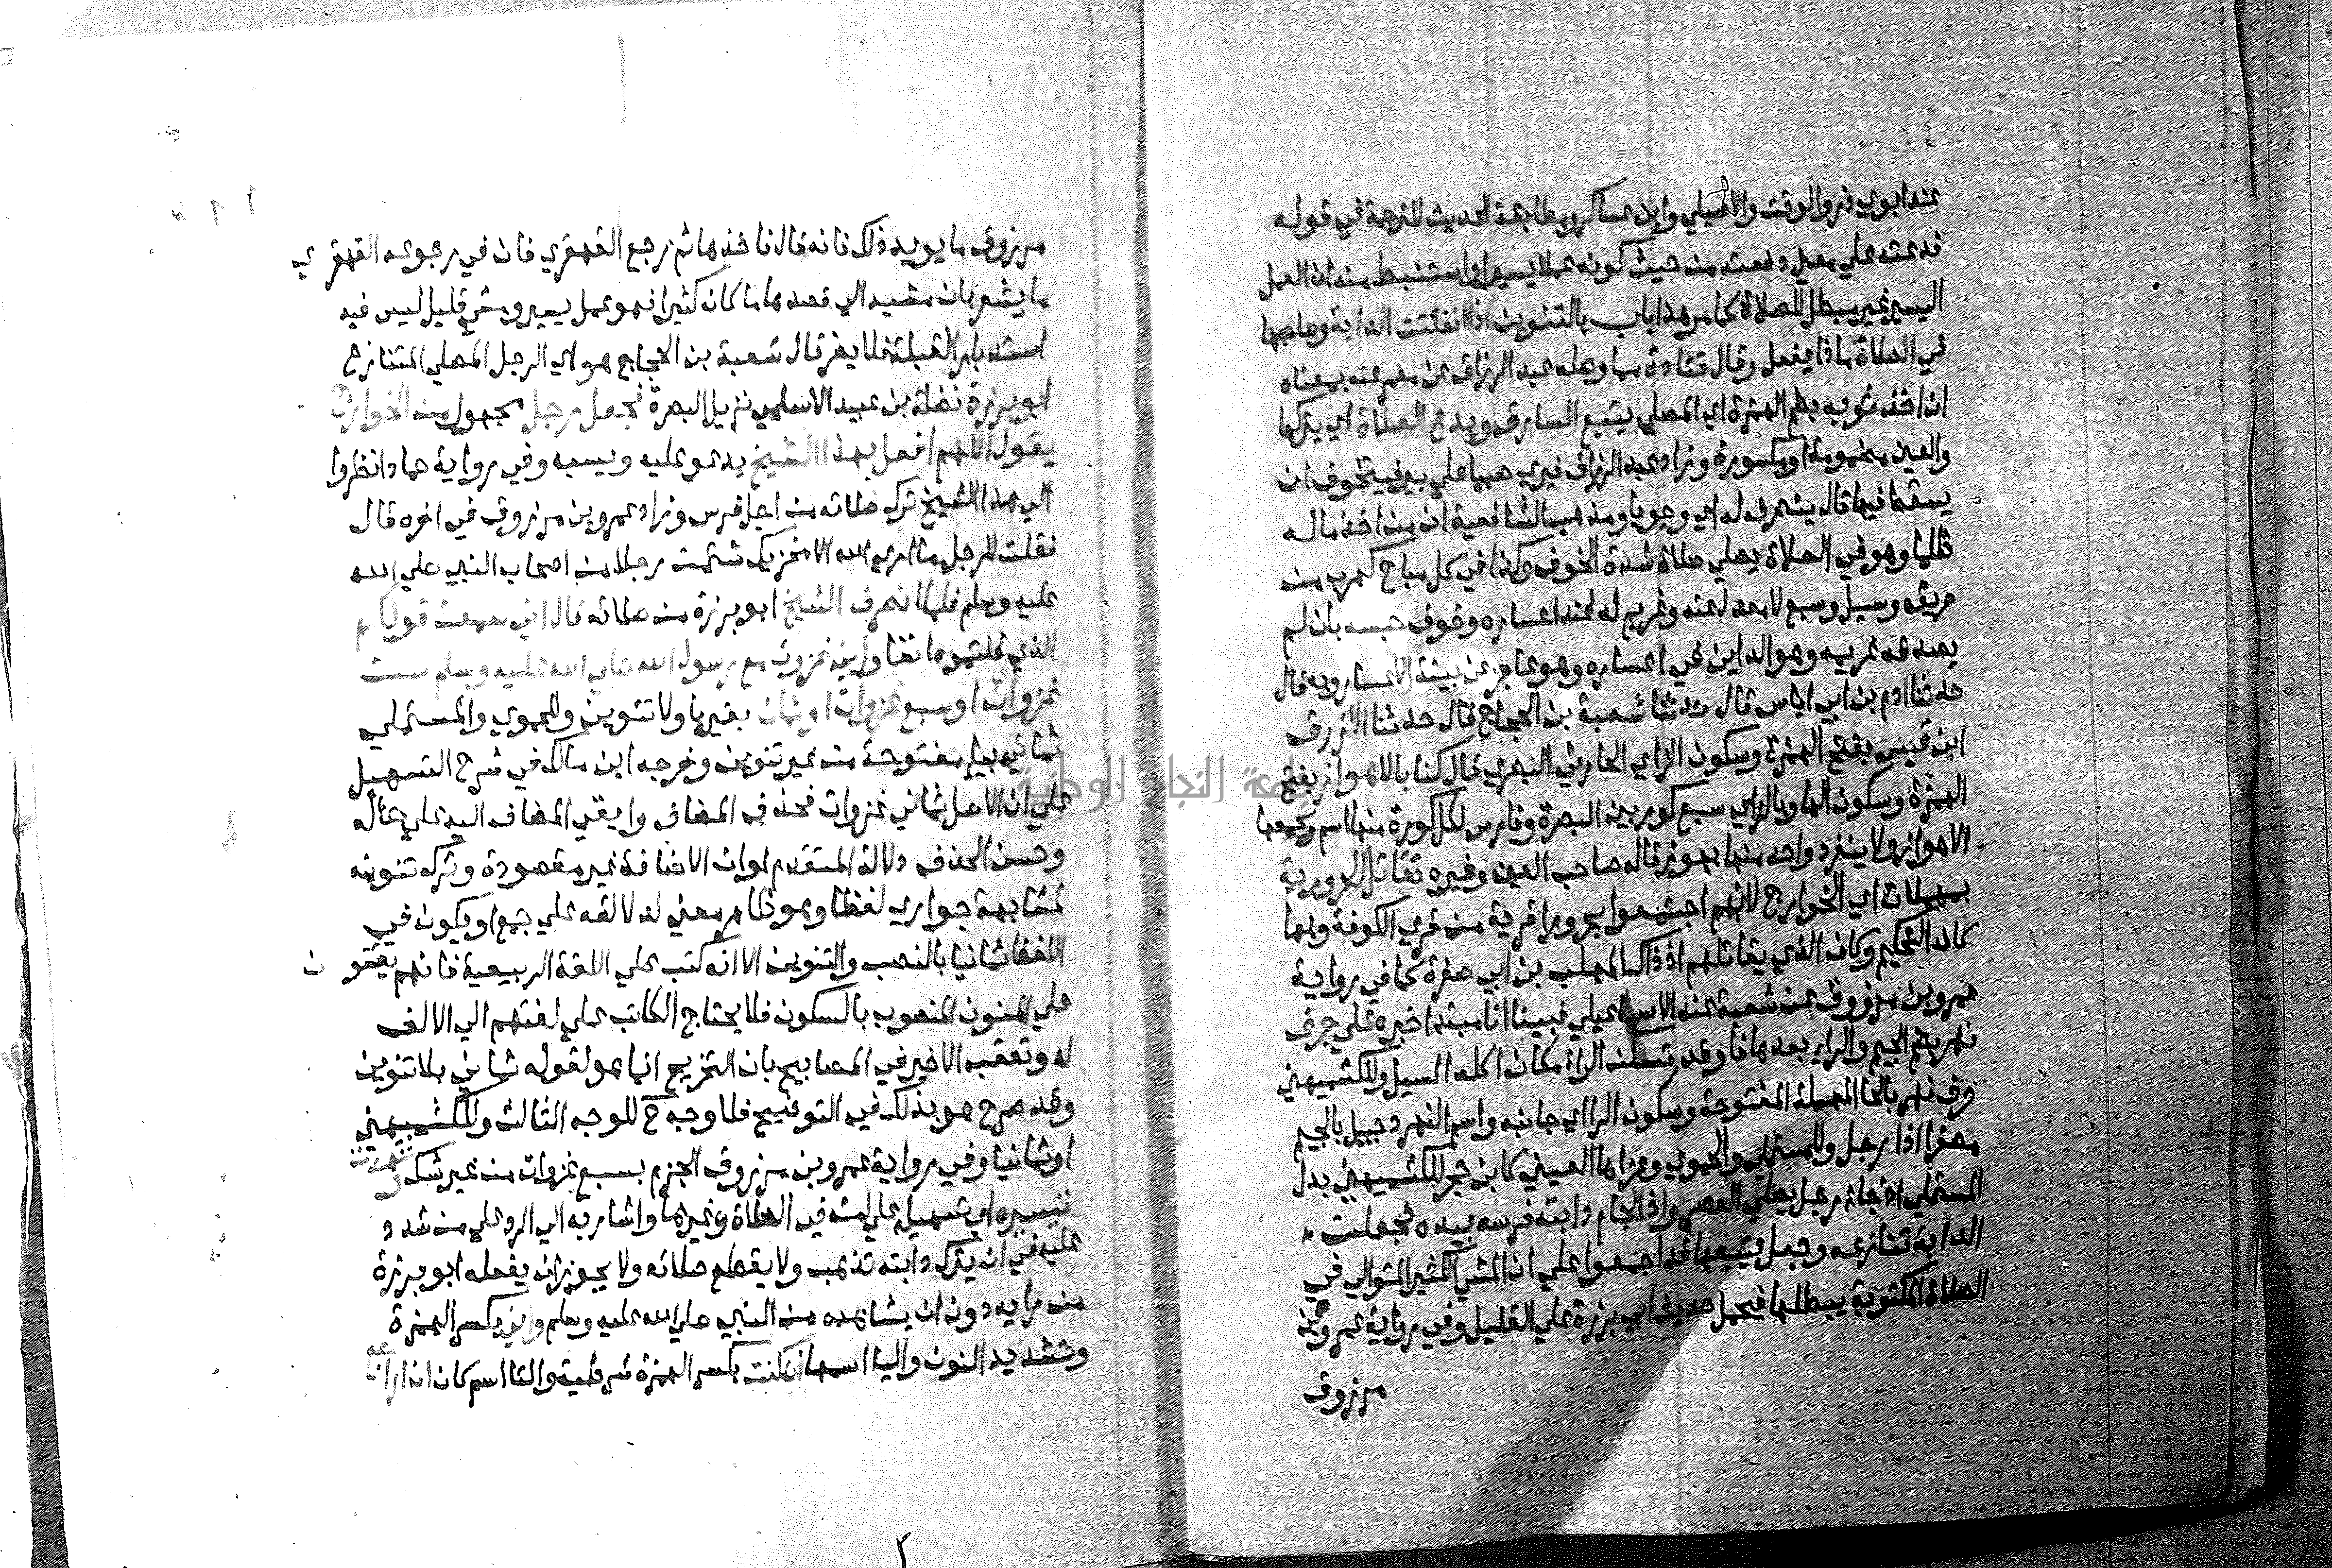 عند ابوي ذر والوقت والاصيلي وابن عساكر ومطابقة الحديث للترجمة في قوله
فدعته علي معني دفعته من حيث كونه عملا يسيرا واستنبط منه ان العمل
اليسير غير مبطل للصلاة كما مر هذا باب بالتنوين اذا انفلتت الدابة وصاحبها
في الصلاة ماذا يفعل وقال قتادة مما وصله عبد الرزاق عن معمر عنه بمعناه
ان اخذ ثوبه بضم الهمزة اي المصلي يتبع السارق ويدع الصلاة اي يتركها
والعين مضمومة او مكسورة وزاد عبد الرزاق فيري صبيا علي بير فيتخوف ان
يسقط فيها قال ينصرف له اي وجوبا ومذهب الشافعية ان من اخذ ماله
ظلما وهو في الصلاة يصلي صلاة شدة الخوف وكذا في كل مباح كهرب من
حريق وسيل وسبع لا معدل عنه وغريم له عند اعساره وخوف حبسه بان لم
يصدقه غريمه وهو الداين في اعساره وهو عاجز عن بينة الاعسار وبه قال
حدثنا ادم بن ابي اياس قال حدثنا شعبة بن الحجاج قال حدثنا الازرق
ابن قيس بفتح الهمزة وسكون الزاي الحارثي البصري قال كنا بالاهواز بفتح
الهمزة وسكون الها وبالزاي سبع كور بين البصرة وفارس لكل كورة منها اسم ويجمعها
الاهواز ولا ينفرد واحد منها بهوز قاله صاحب العين وغيره نقاتل الحرورية
بمهملات اي الخوارج لانهم اجتمعوا بحرورا قرية من قري الكوفة وبها
كان التحكيم وكان الذي يقاتلهم اذ ذاك المهلب بن ابي صفرة كما في رواية
عمرو بن مرزوق عن شعبة عند الاسماعيلي فبينا انا مبتدا خبره علي جرف
نهر بضم الجيم والراء بعدها فا وقد تسكن الراء مكان اكله السيل وللكشميهني
حرف نهر بالحا المهملة المفتوحة وسكون الرا اي جانبه واسم النهر دجيل بالجيم
مصغرا اذا رجل وللمستملي والحموي وعزاها العيني كابن حجر للكشميهني بدل
المستملي اذ جاء رجل يصلي العصر واذا لجام دابته فرسه بيده فجعلت
الدابة تنازعه وجعل يتبعها قد اجمعوا علي ان المشي الكثير المتوالي في
الصلاة المكتوبة يبطلها فيحمل حديث ابي برزة علي القليل وفي رواية عمرو بن
مرزوق
مرزوق ما يويد ذلك فانه قال فاخذها ثم رجع القهقري فان في رجوعه القهقري
ما يشعر بان مشيه الي قصدها ما كان كثيرا فهو عمل يسير ومشي قليل ليس فيه
استدبار القبلة فلا يضر قال شعبة بن الحجاج هو اي الرجل المصلي المتنازع
ابو برزة نضلة بن عبيد الاسلمي نزيل البصرة فجعل رجل مجهول من الخوارج
يقول اللهم افعل بهذا الشيخ يدعو عليه ويسبه وفي رواية حماد انظروا
الي هذا الشيخ ترك صلاته من اجل فرس وزاد عمرو بن مرزوق في اخره قال
فقلت للرجل ما اري الله الا مخزيك شتمت رجلا من اصحاب النبي صلي الله
عليه وسلم فلما انصرف الشيخ ابو برزة من صلاته قال اني سمعت قولكم
الذي قلتموه انفا واني غزوت مع رسول الله صلي الله عليه وسلم ست
غزوات او سبع غزوات او ثمان بغير يا ولا تنوين وللحموي والمستملي
ثماني بياء مفتوحة من غير تنوين وخرجه ابن مالك في شرح التسهيل
علي ان الاصل ثماني غزوات فحذف المضاف وابقي المضاف اليه علي حاله
وحسن الحذف دلالة المتقدم او ان الاضافة غير مقصودة وترك تنوينه
لمشابهة جواري لفظا وهو ظاهر ومعني لدلالته علي جمع او يكون في
اللفظ ثمانيا بالنصب والتنوين الا انه كتب علي اللغة الربيعية فانهم يقفون
علي المنون المنصوب بالسكون فلا يحتاج الكاتب علي لغتهم الي الالف
اه وتعقب الاخير في المصابيح بان التخريج انما هو لقوله ثماني بلا تنوين
وقد صرح هو بذلك في التوضيح فلا وجه ح للوجه الثالث وللكشميهني
او ثمانيا وفي رواية عمرو بن مرزوق الجزم بسبع غزوات من غير شك
تيسيره اي تسهيله علي امته في الصلاة وغيرها واشار به الي الرد علي من شدد
عليه في ان يترك دابته تذهب ولا يقطع صلاته ولا يجوز ان يفعله ابو برزة
من رايه دون ان يشاهده من النبي صلي الله عليه وسلم واني بكسر الهمزة
وتشديد النون واليا اسمها ان كنت بكسر الهمزة شرطية والتا اسم كان ان